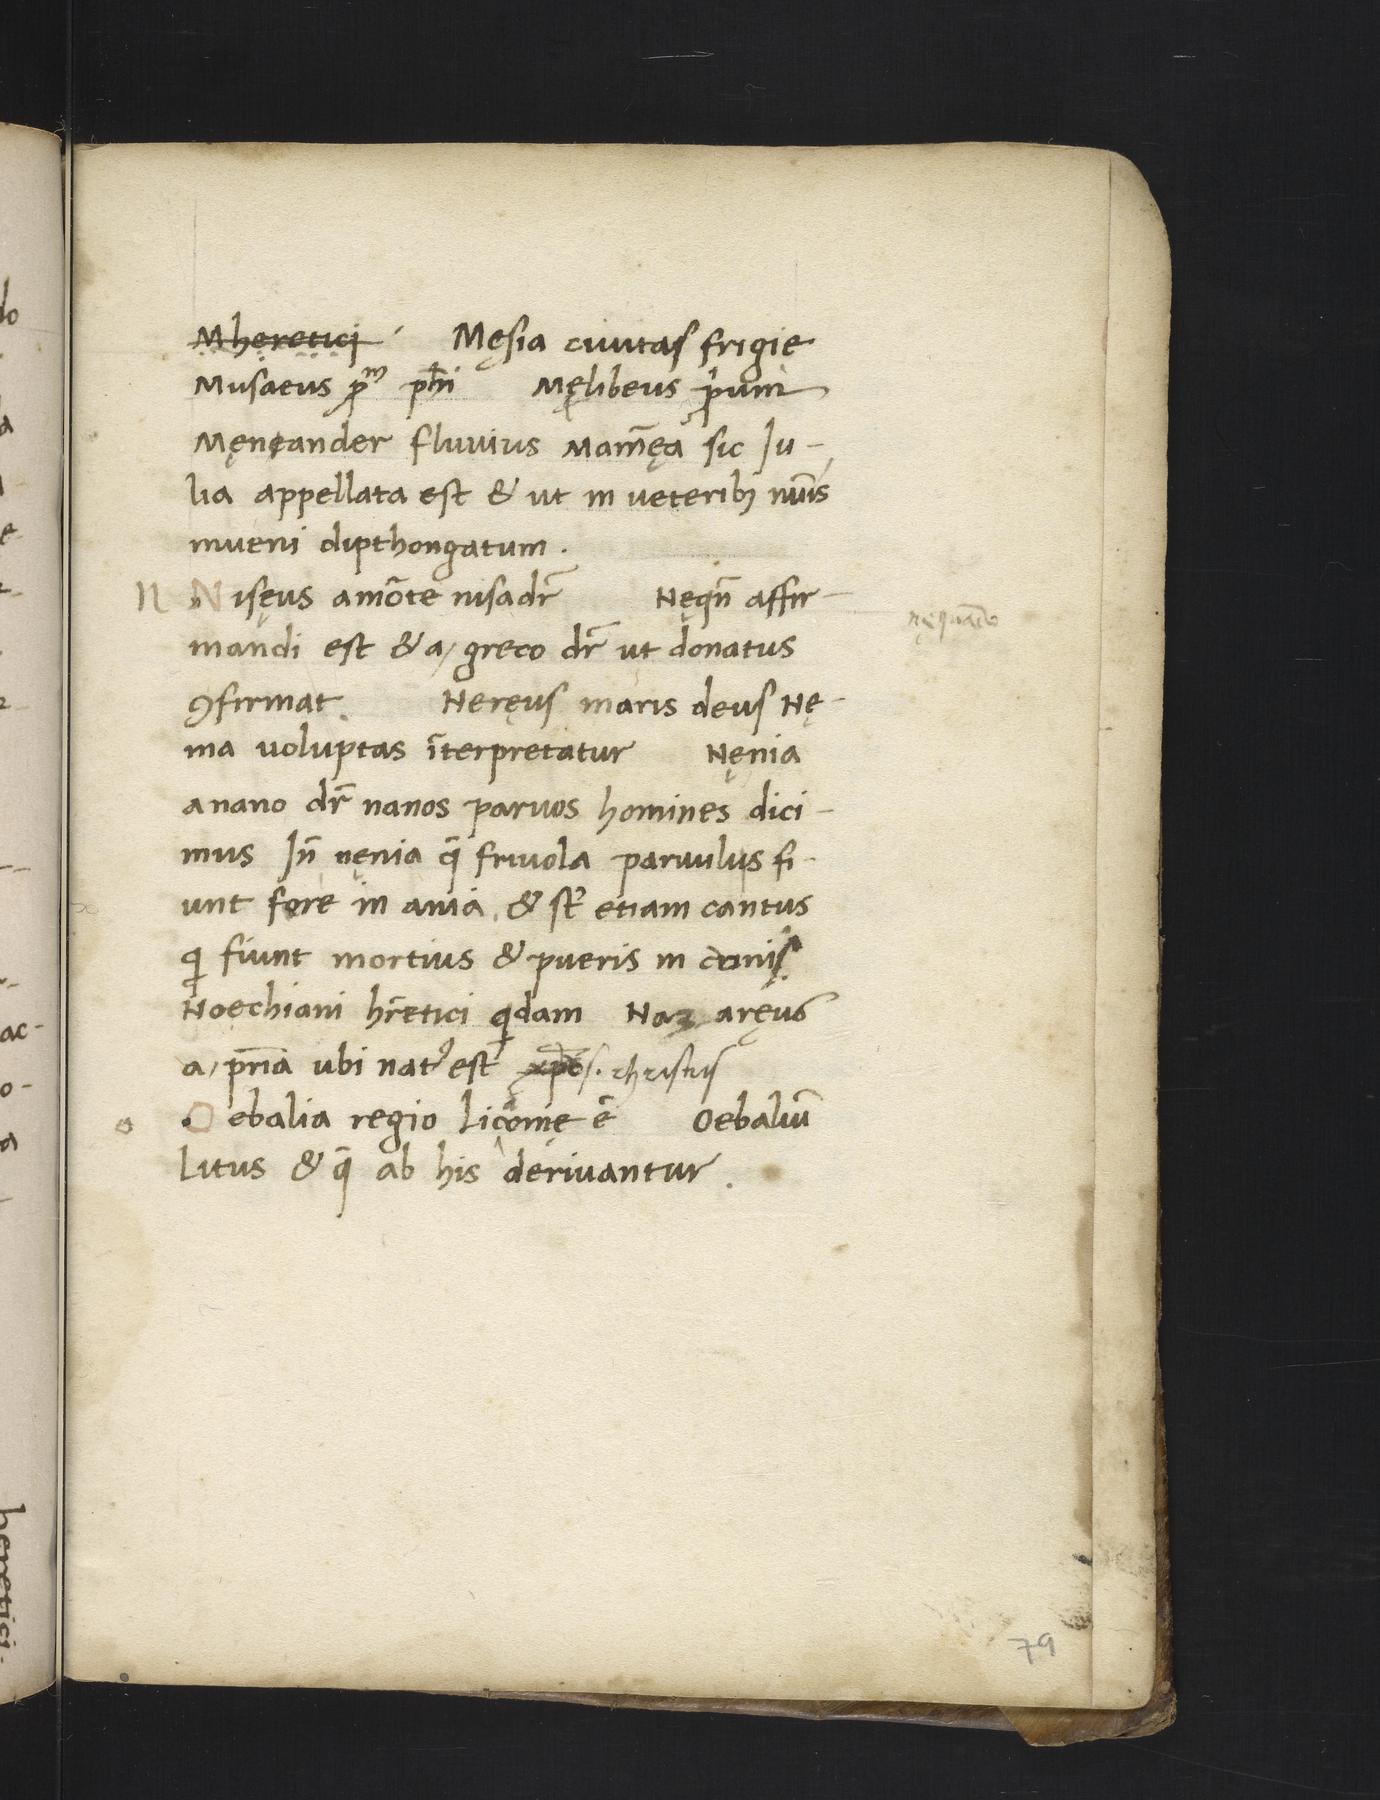 Mheretici Męsia ciuitas frigie
Musaeus pr̄m ph̄i Męlibeus
Męneander fluuius Mam̄ęa sic Iu-
lia appellata est & ut in ueterib; num̄is
inueni dipthongatum.
N Nisęus a mōte nisa dr̄ Nęqn̄ affir-
mandi est & a greco dr̄ ut donatus
ꝯfirmat. Neręus maris deus Nę-
ma uoluptas īterpretatur Nęnia
a nano dr̄ nanos paruos homines dici-
mus In̄ nęnia q̄ friuola paruulus fi-
unt fore in & st̄ etiam cantus
qi fiunt mortius & pueris in cunis
Noechiani hr̄etici qidam Nazaręus
a pr̄ia ubi nat9 est xp̄s. christus
o Oebalia regio licōnię ē Oebaliū
Litus & q̄ ab his deriuantur.
nęquādo
heretici.
79